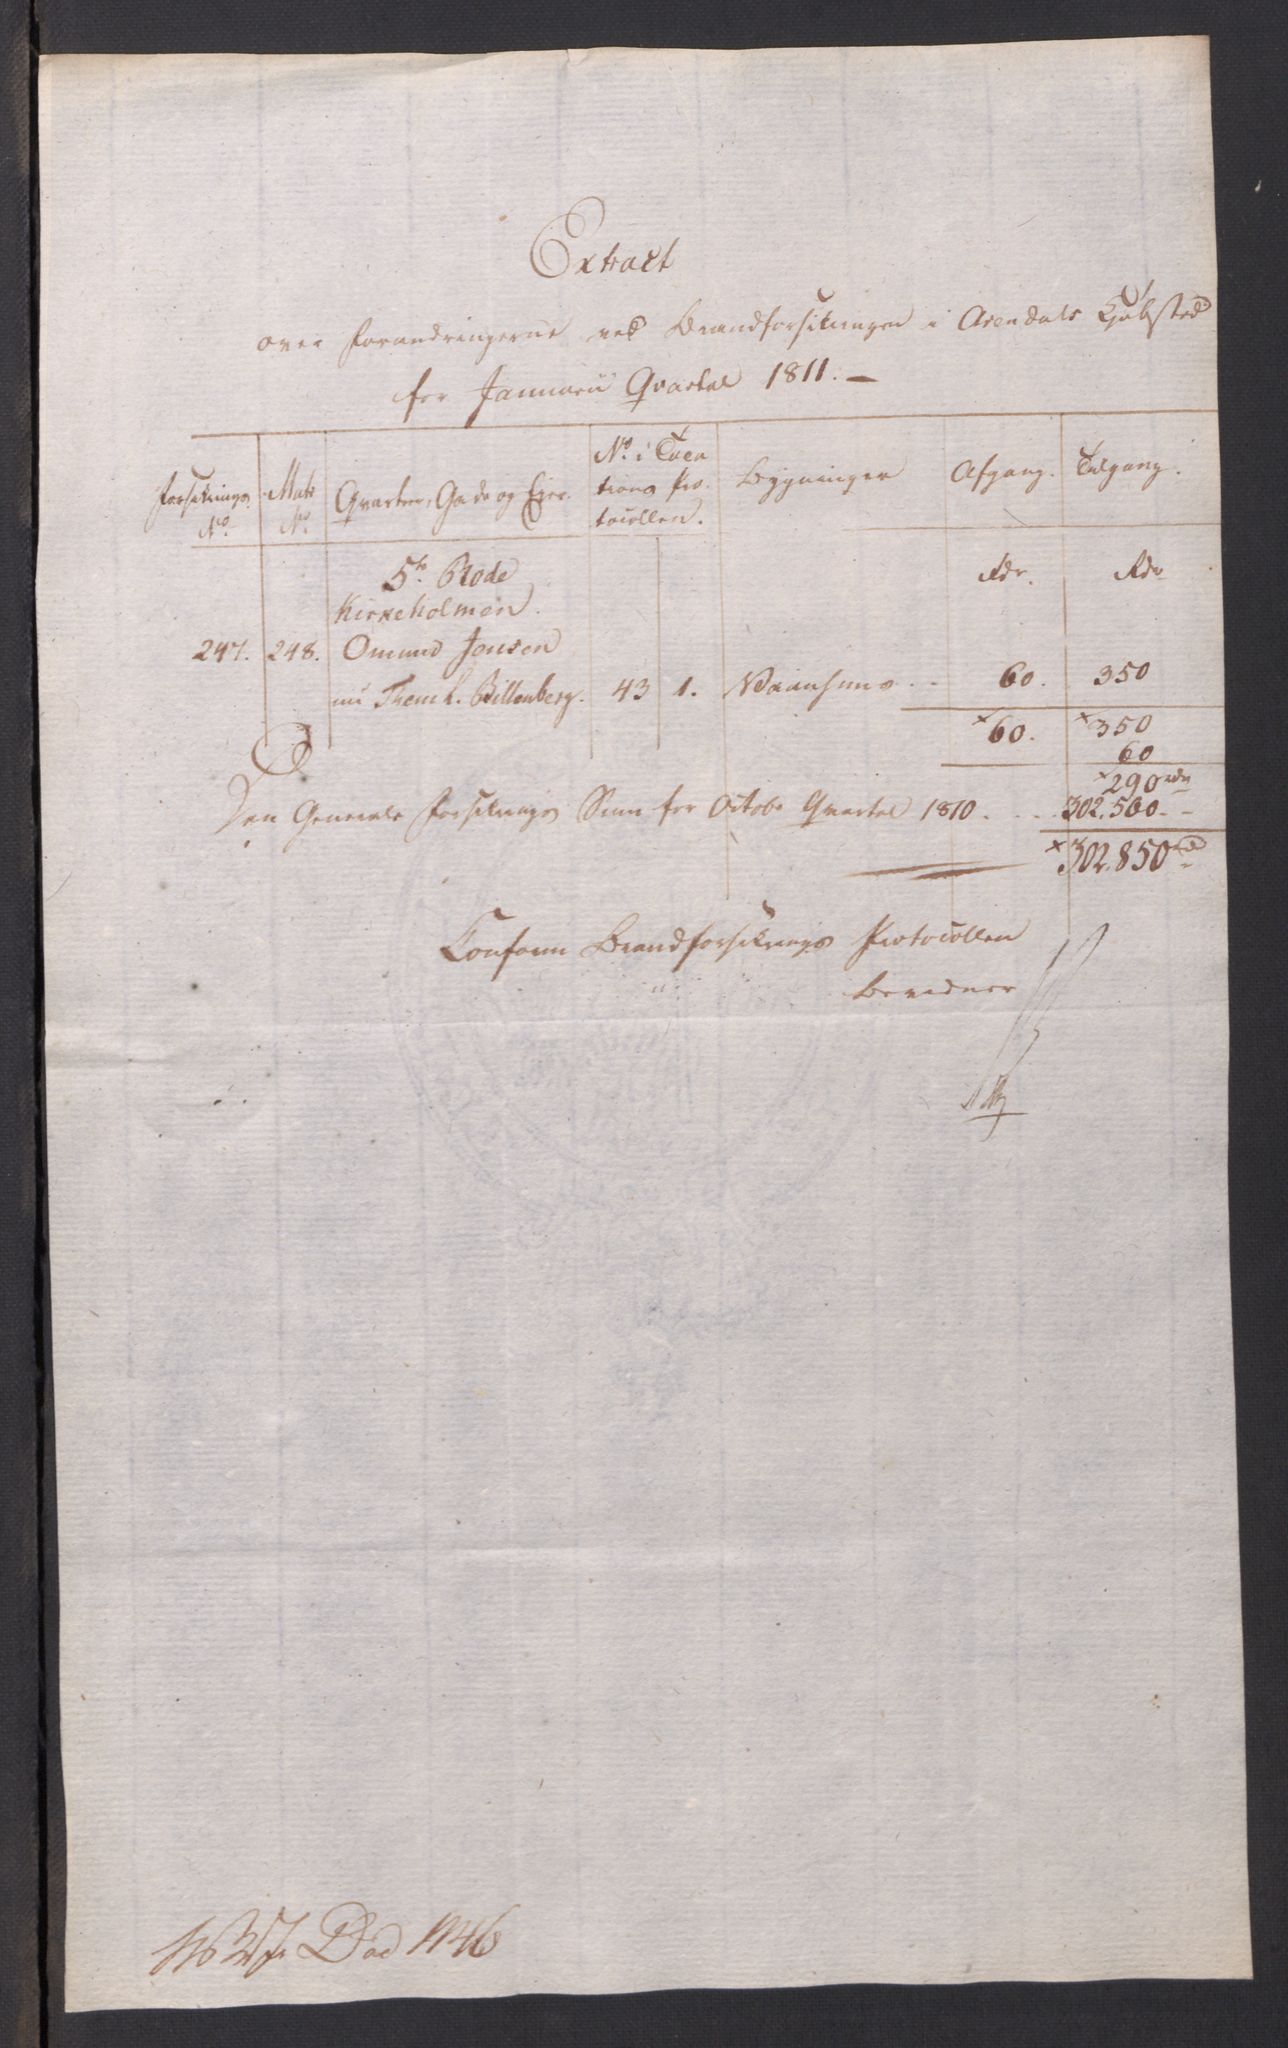 Extract
over Forandringerne ved Brandforsikringen i Arendals Kjøbsted
for Januarii Qvartal 1811. —
Forsikrings No. Matr No. Qvarteer, Gade og Ejer. No. i Taxa tions Pro tocollen. Bygninger Afgang. Tilgang.
5te Rode Rdr. Rdr
Kirkeholmen.
247. 248. Omund Jensen
nu L. Billenberg. 43 1. Vaanhuus 60. 350
60. 350
60
290 rdr
Den Generale Forsikrings Sum for Octobr Qvartal 1810 . . . 302.560.
302.850 rd
Conform Brandforsikrings Protocollen
bevidner